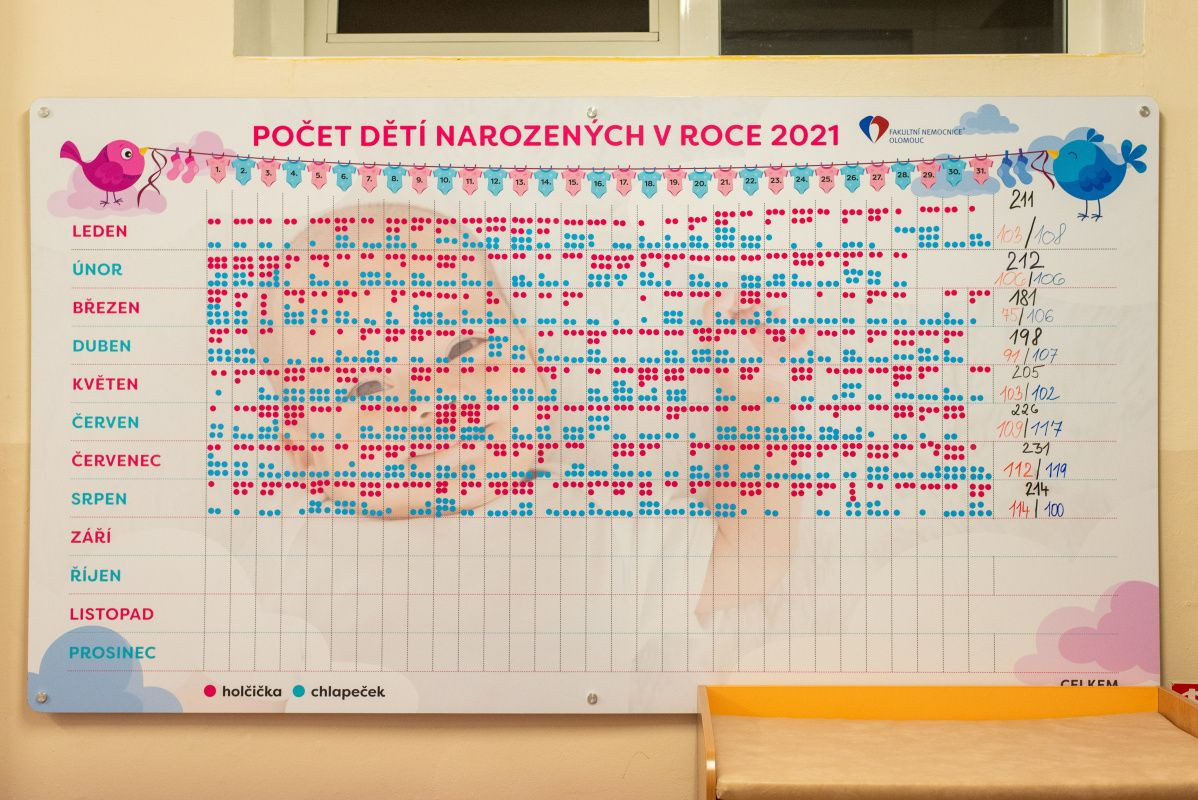 POČET DĚTÍ NAROZENÝCH V ROCE 2021
FAKULTNÍ NEMOCNICE
OLOMOUC
1. 2. 3. 4. 5. 6. 7. 8. 9. 10. 11. 12. 13. 14. 15. 16. 17. 18. 19. 20. 21. 22. 23. 24. 25. 26. 27. 28. 29. 30. 31.
211
LEDEN 103/108
212
ÚNOR 106/106
181
BŘEZEN 75/106
198
DUBEN 91/107
205
KVĚTEN 103/102
226
ČERVEN 109/117
231
ČERVENEC 112/119
214
SRPEN 114/100
ZÁŘÍ
ŘÍJEN
LISTOPAD
PROSINEC
CELKEM
holčička chlapeček